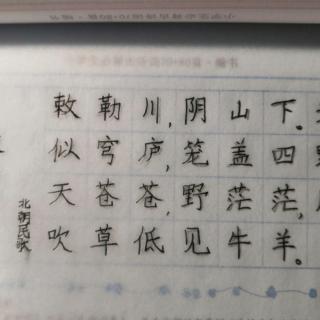 敕勒川,阴山下。
似穹庐,笼盖四
天苍苍,野茫茫,
吹草低见牛羊。
北朝民歌